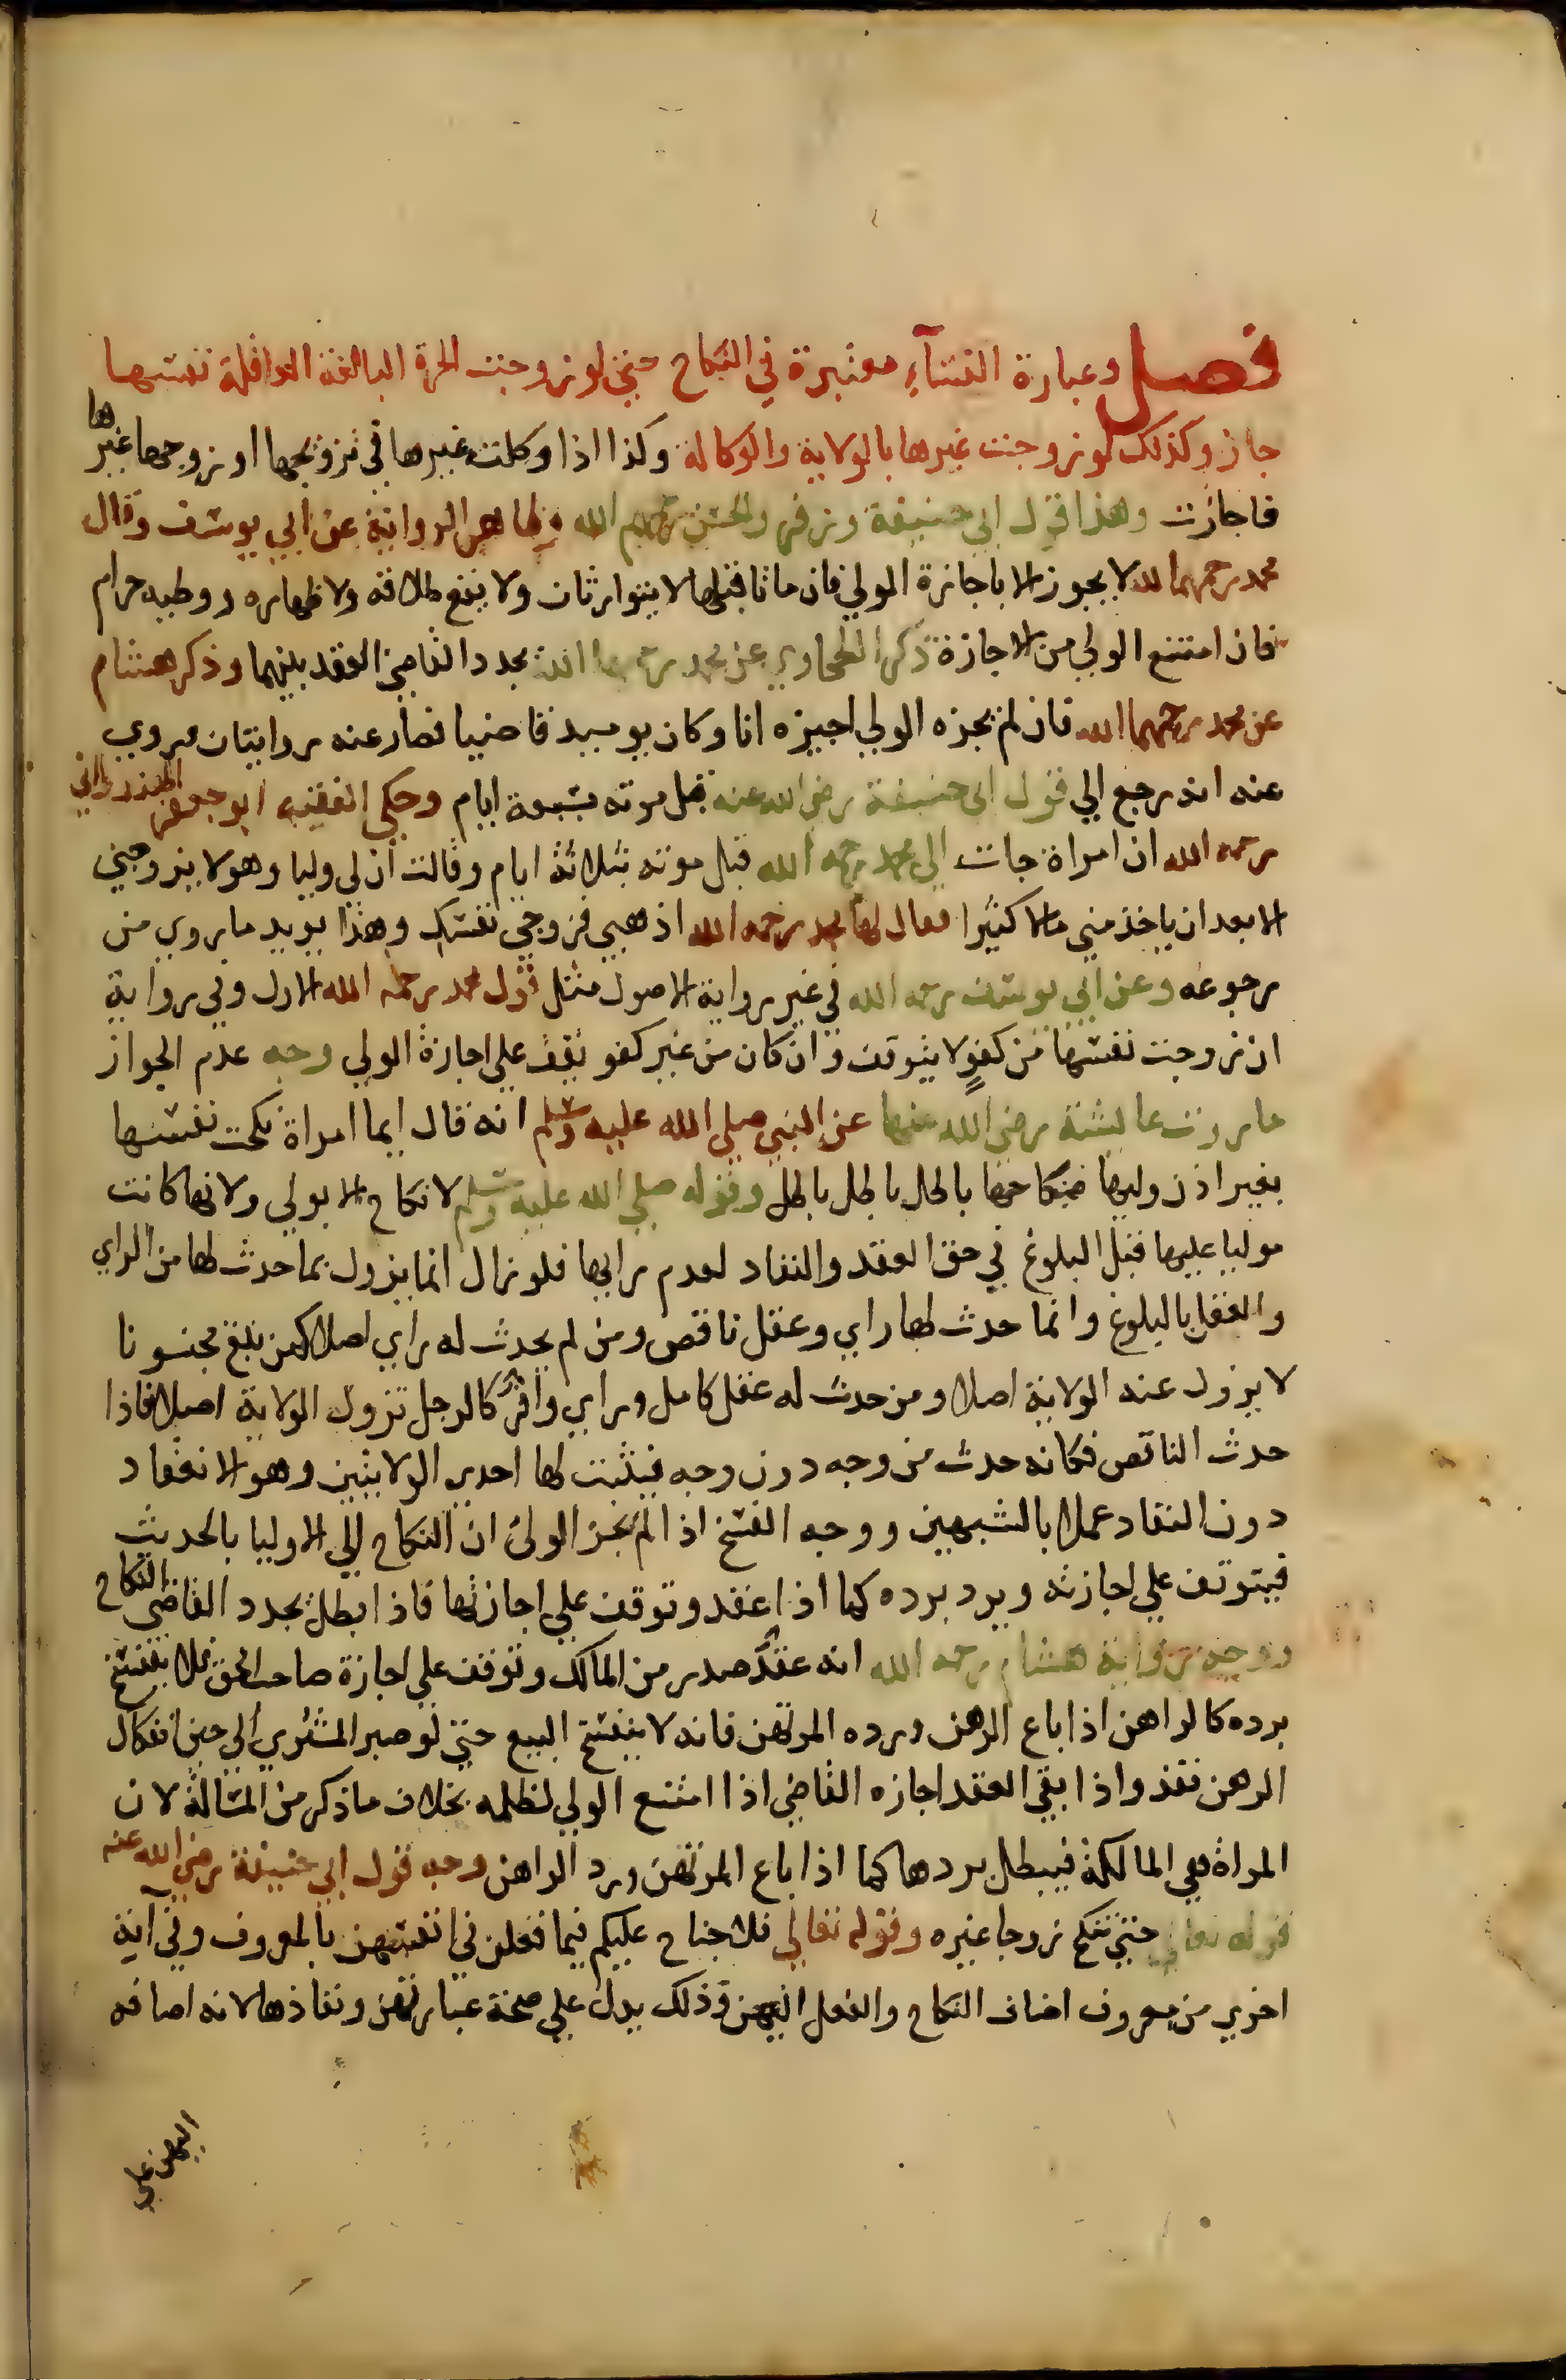 فصل وعبارة النساء معتبرة في النكاح حتى لو زوجت الحرة البالغة العاقلة نفسها
جاز وكذلك لو زوجت غيرها بالولاية والوكالة وكذا اذا وكلت غيرها في تزويجها او زوجها غيرها
فاجازت وهذا قول ابي حنيفة وزفر والحسن رحمهم الله وظاهر الرواية عن ابي يوسف وقال
محمد رحمهما الله لا يجوز الا باجازة الولي فان ماتا قبلها لا يتوارثان ولا يقع طلاقه ولا ظهاره ووطيه حرام
فان امتنع الولي من الاجازة ذكر الطحاوي عن محمد رحمهما الله يجدد القاضي العقد بينهما وذكر هشام
عن محمد رحمهما الله فان لم يجزه الولي اجيزه انا وكان يوميذ قاضيا فصار عنه روايتان وروي
عنه انه رجع الي قول ابي حنيفة رضي الله عنه قبل موته بسبعة ايام وحكي الفقيه ابو جعفر الهندواني
رحمه الله ان امراة جات الي محمد رحمه الله قبل موته بثلاثة ايام وقالت ان لي وليا وهو لا يزوجني
الا بعد ان ياخذ مني مالا كثيرا فقال لها محمد رحمه الله اذهبي فزوجي نفسك وهذا يويد ما روي من
رجوعه وعن ابي يوسف رحمه الله في غير رواية الاصول مثل قول محمد رحمه الله الاول وفي رواية
ان زوجت نفسها من كفو لا يتوقف وان كان من غير كفو يقف علي اجازة الولي وجه عدم الجواز
ما روت عايشة رضي الله عنها عن النبي صلي الله عليه وسلم انه قال ايما امراة نكحت نفسها
بغير اذن وليها فنكاحها باطل باطل باطل وقوله صلي الله عليه وسلم لا نكاح الا بولي ولانها كانت
موليا عليها قبل البلوغ في حق العقد والنفاد لعدم رايها فلو زال انما يزول بما حدث لها من الراي
والعقل بالبلوغ وانما حدث لها راي وعقل ناقص ومن لم يحدث له راي اصلا كمن بلغ مجنونا
لا يزول عنه الولاية اصلا ومن حدث له عقل كامل وراي وافر كالرجل تزول الولاية اصلا فاذا
حدث الناقص فكانه حدث من وجه دون وجه فيثبت لها احدي الولايتين وهو الانعقاد
دون النفاد عملا بالشبهين ووجه الفسخ اذا لم يجز الولي ان النكاح الي الاوليا بالحديث
فيتوقف علي اجازته ويرد برده كما اذا عقد وتوقف علي اجازتها فاذا بطل يجدد القاضي النكاح
ووجه رواية هشام رحمه الله انه عقد صدر من المالك وتوقف علي اجازة صاحب الحق فلا ينفسخ
برده كالراهن اذا باع الرهن ورده المرتهن فانه لا ينفسخ البيع حتي لو صبر المشتري الي حين انفكاك
الرهن نفذ واذا بقي العقد اجازه القاضي اذا امتنع الولي لظلمه بخلاف ما ذكر من المسالة لان
المراة هي المالكة فيبطل بردها كما اذا باع المرتهن ورد الراهن وجه قول ابي حنيفة رضي الله عنه
قوله تعالي حتي تنكح زوجا غيره وقوله تعالي فلا جناح عليكم فيما فعلن في انفسهن بالمعروف وفي آية
اخري من معروف اضاف النكاح والفعل اليهن وذلك يدل علي صحة عبارتهن ونفاذها لانه اضافه
اليهن علي